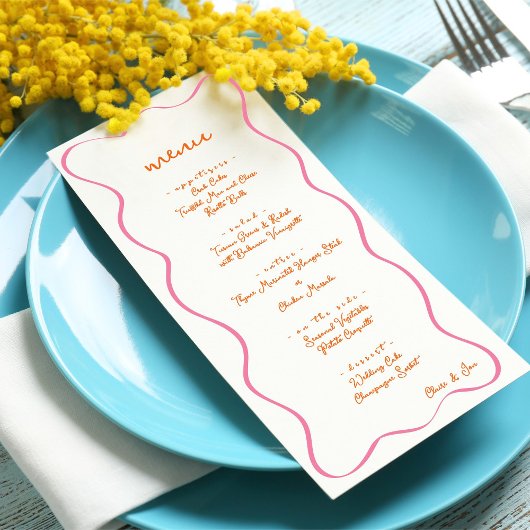 menu
- appetisers -
Crab Cakes
Truffled Mac and Cheese
Risotto Balls
- salad -
Tuscan Greens & Relish
with Balsamic Vinaigrette
- entree -
Thyme Marinated Hanger Steak
or
Chicken Marsala
- on the side -
Seasonal Vegetables
Potato Croquette
- dessert -
Wedding Cake
Champagne Sorbet
Claire & Jon